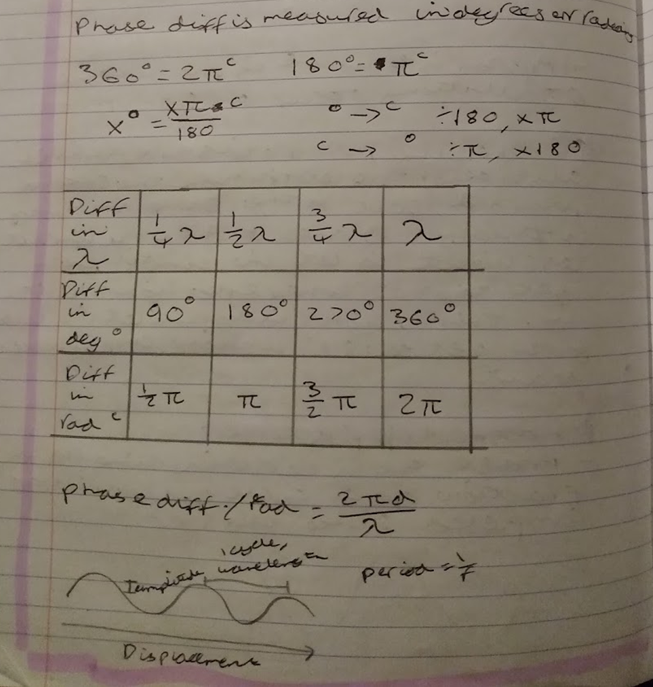 Phase diff is measured in degrees or radians
360° = 2πᶜ 180° = πᶜ
x° = xπᶜ/180 ° → ᶜ ÷180, ×π
ᶜ → ° ÷π, ×180
Diff in λ 1/4 λ 1/2 λ 3/4 λ λ
Diff in deg° 90° 180° 270° 360°
Diff in radᶜ 1/2 π π 3/2 π 2π
Phase diff./rad = 2πd/λ
1 cycle,
wavelength period = 1/f
Displacement